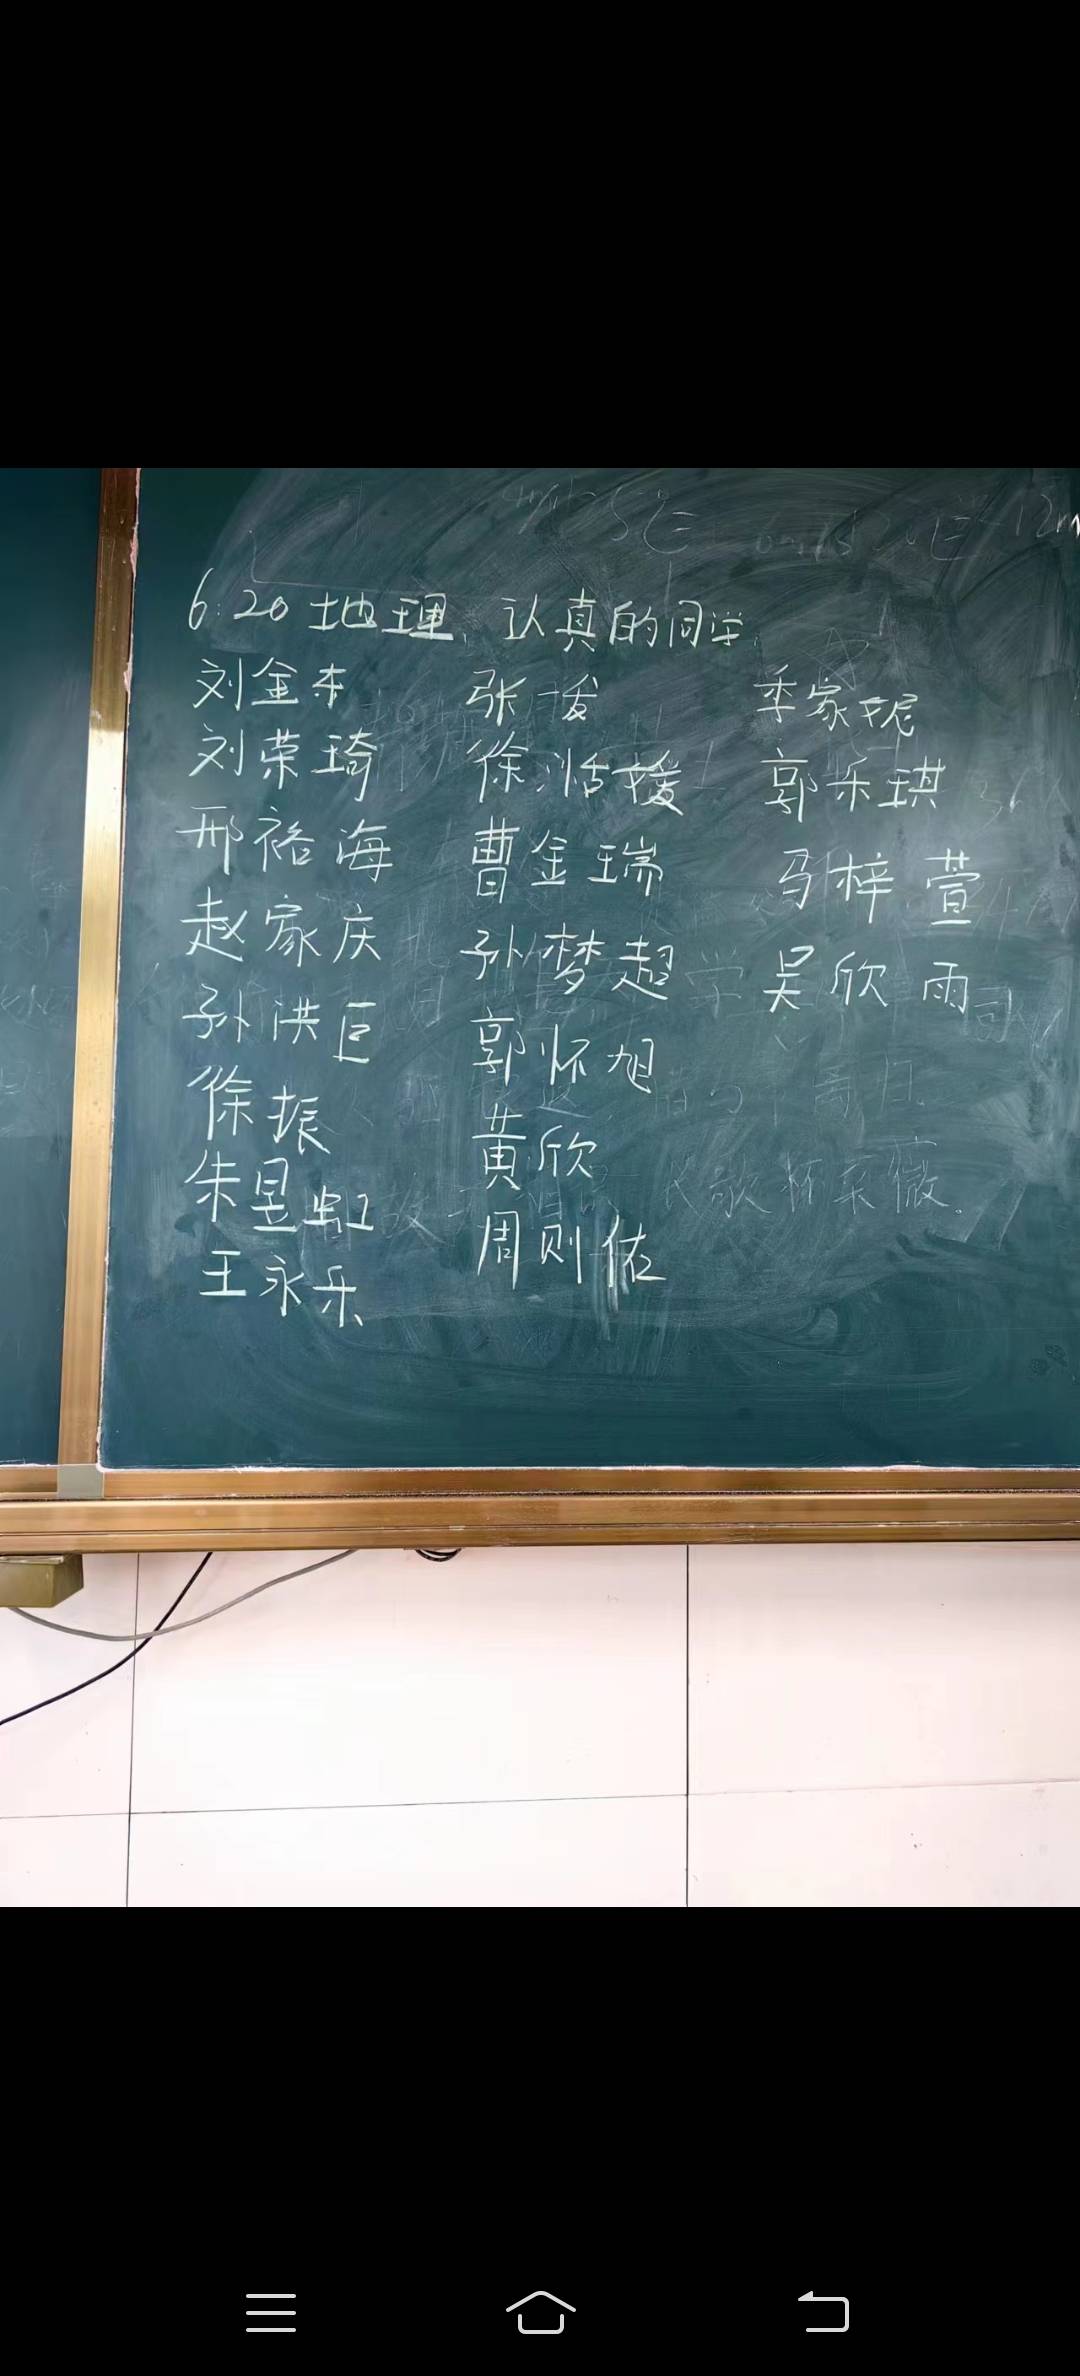 6:20 地理, 认真的同学.
刘金东
刘荣琦
邢裕海
赵家庆
孙洪巨
徐振
朱昱虹
王永乐
张浚
徐湉媛
曹金瑞
孙梦超
郭怀旭
黄欣
周则依
季家妮
郭乐琪
马梓萱
吴欣雨